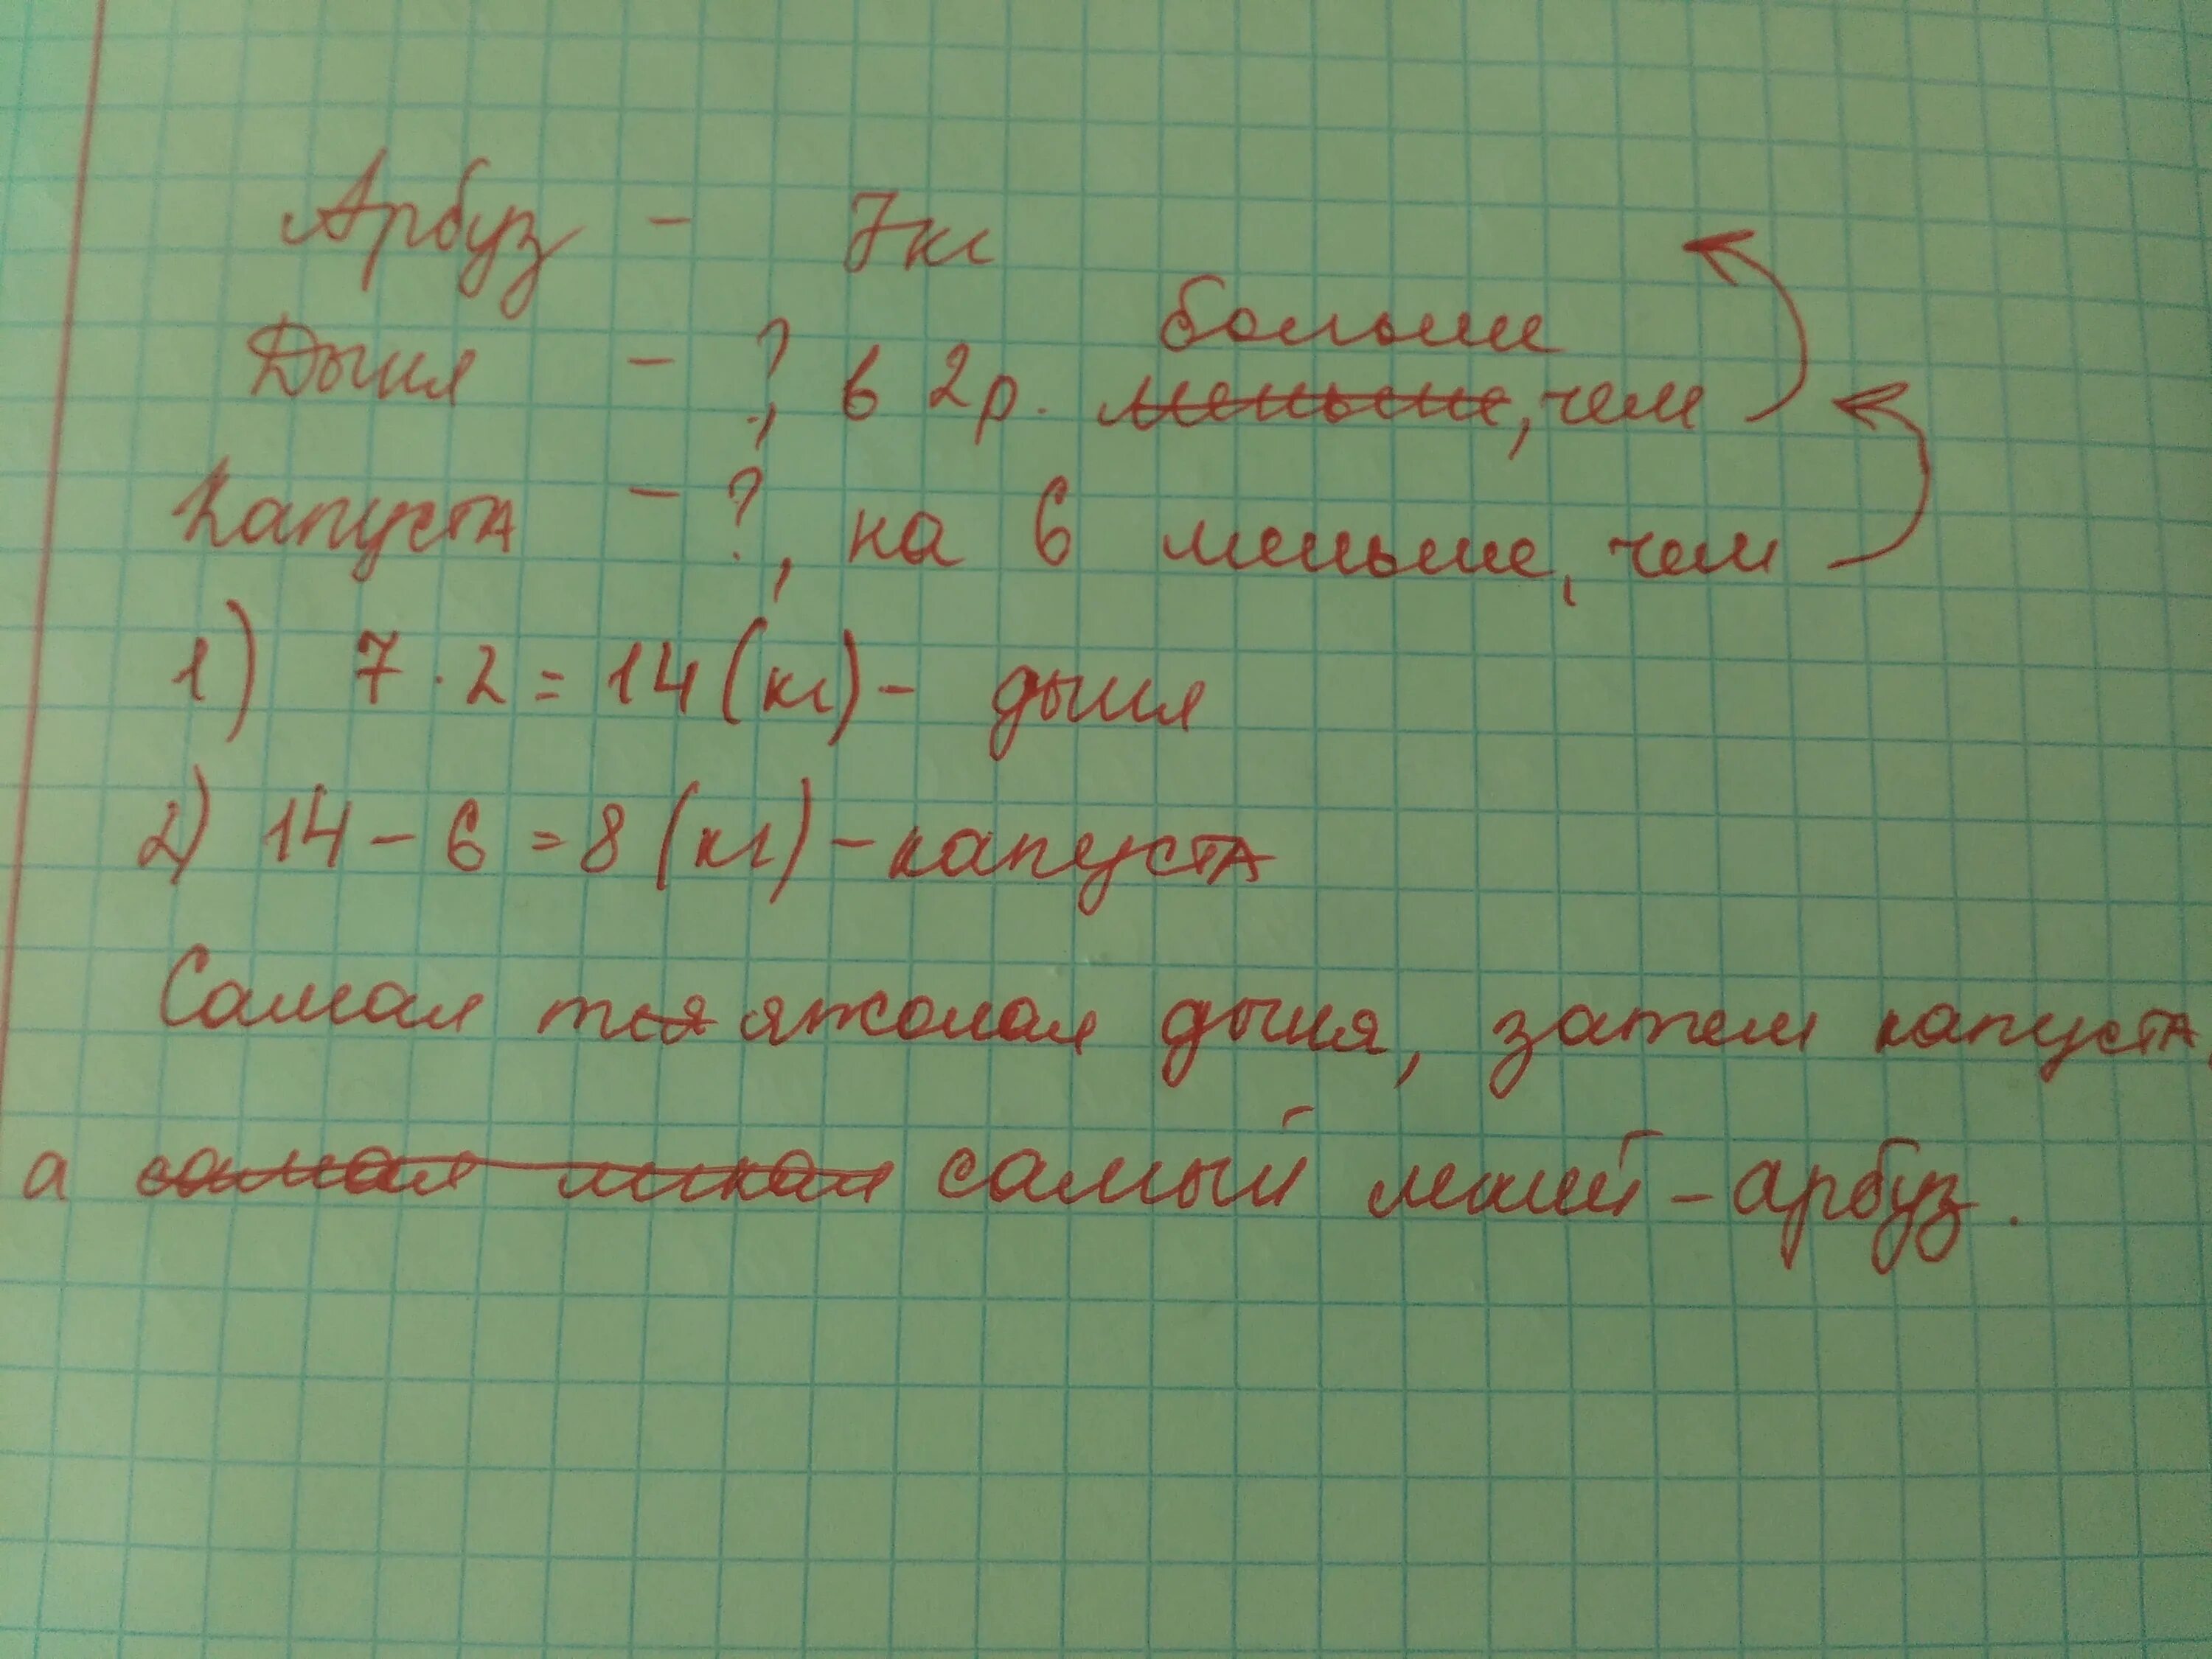 Арбуз - 7кг
больше
Дыня - ?, в 2р. меньше, чем
Капуста - ?, на 6 меньше, чем
1) 7 · 2 = 14 (кг) - дыня
2) 14 - 6 = 8 (кг) - капуста
Самая тяжолая дыня, затем капуста,
а самая самый - арбуз.